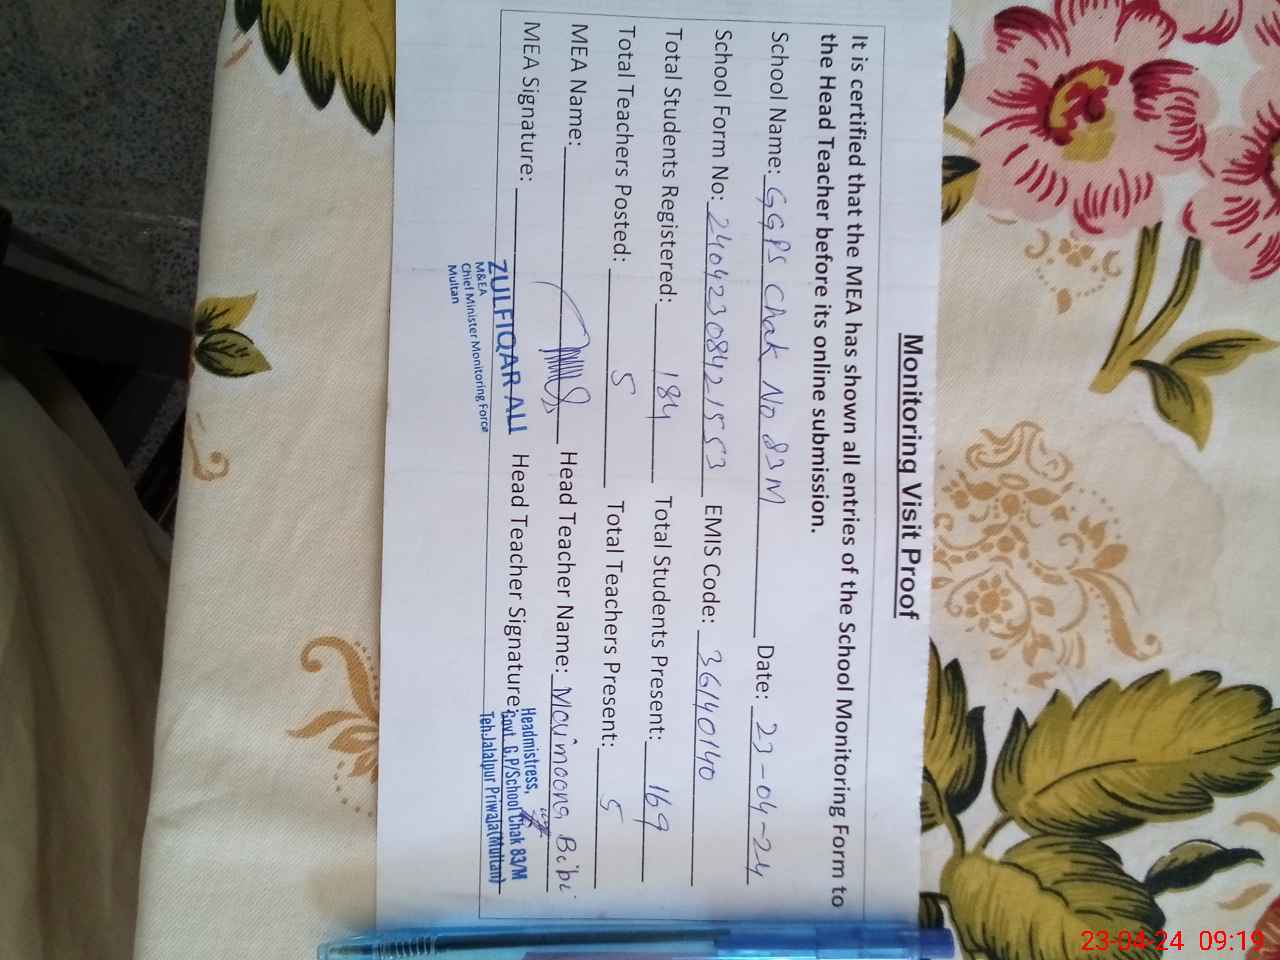 Monitoring Visit Proof
It is certified that the MEA has shown all entries of the School Monitoring Form to
the Head Teacher before its online submission.
School Name: GGPS Chak No 83M Date: 23-04-24
School Form No: 24042308421553 EMIS Code: 36140140
Total Students Registered: 184 Total Students Present: 169
Total Teachers Posted: 5 Total Teachers Present: 5
MEA Name: Head Teacher Name: Maimoona Bibi
MEA Signature: Head Teacher Signature:
ZULFIQAR ALI
M&EA
Chief Minister Monitoring Force
Multan
Headmistress,
Govt. G.P/School Chak 83/M
Teh.Jalalpur Pirwala(Multan)
23-04-24 09:19